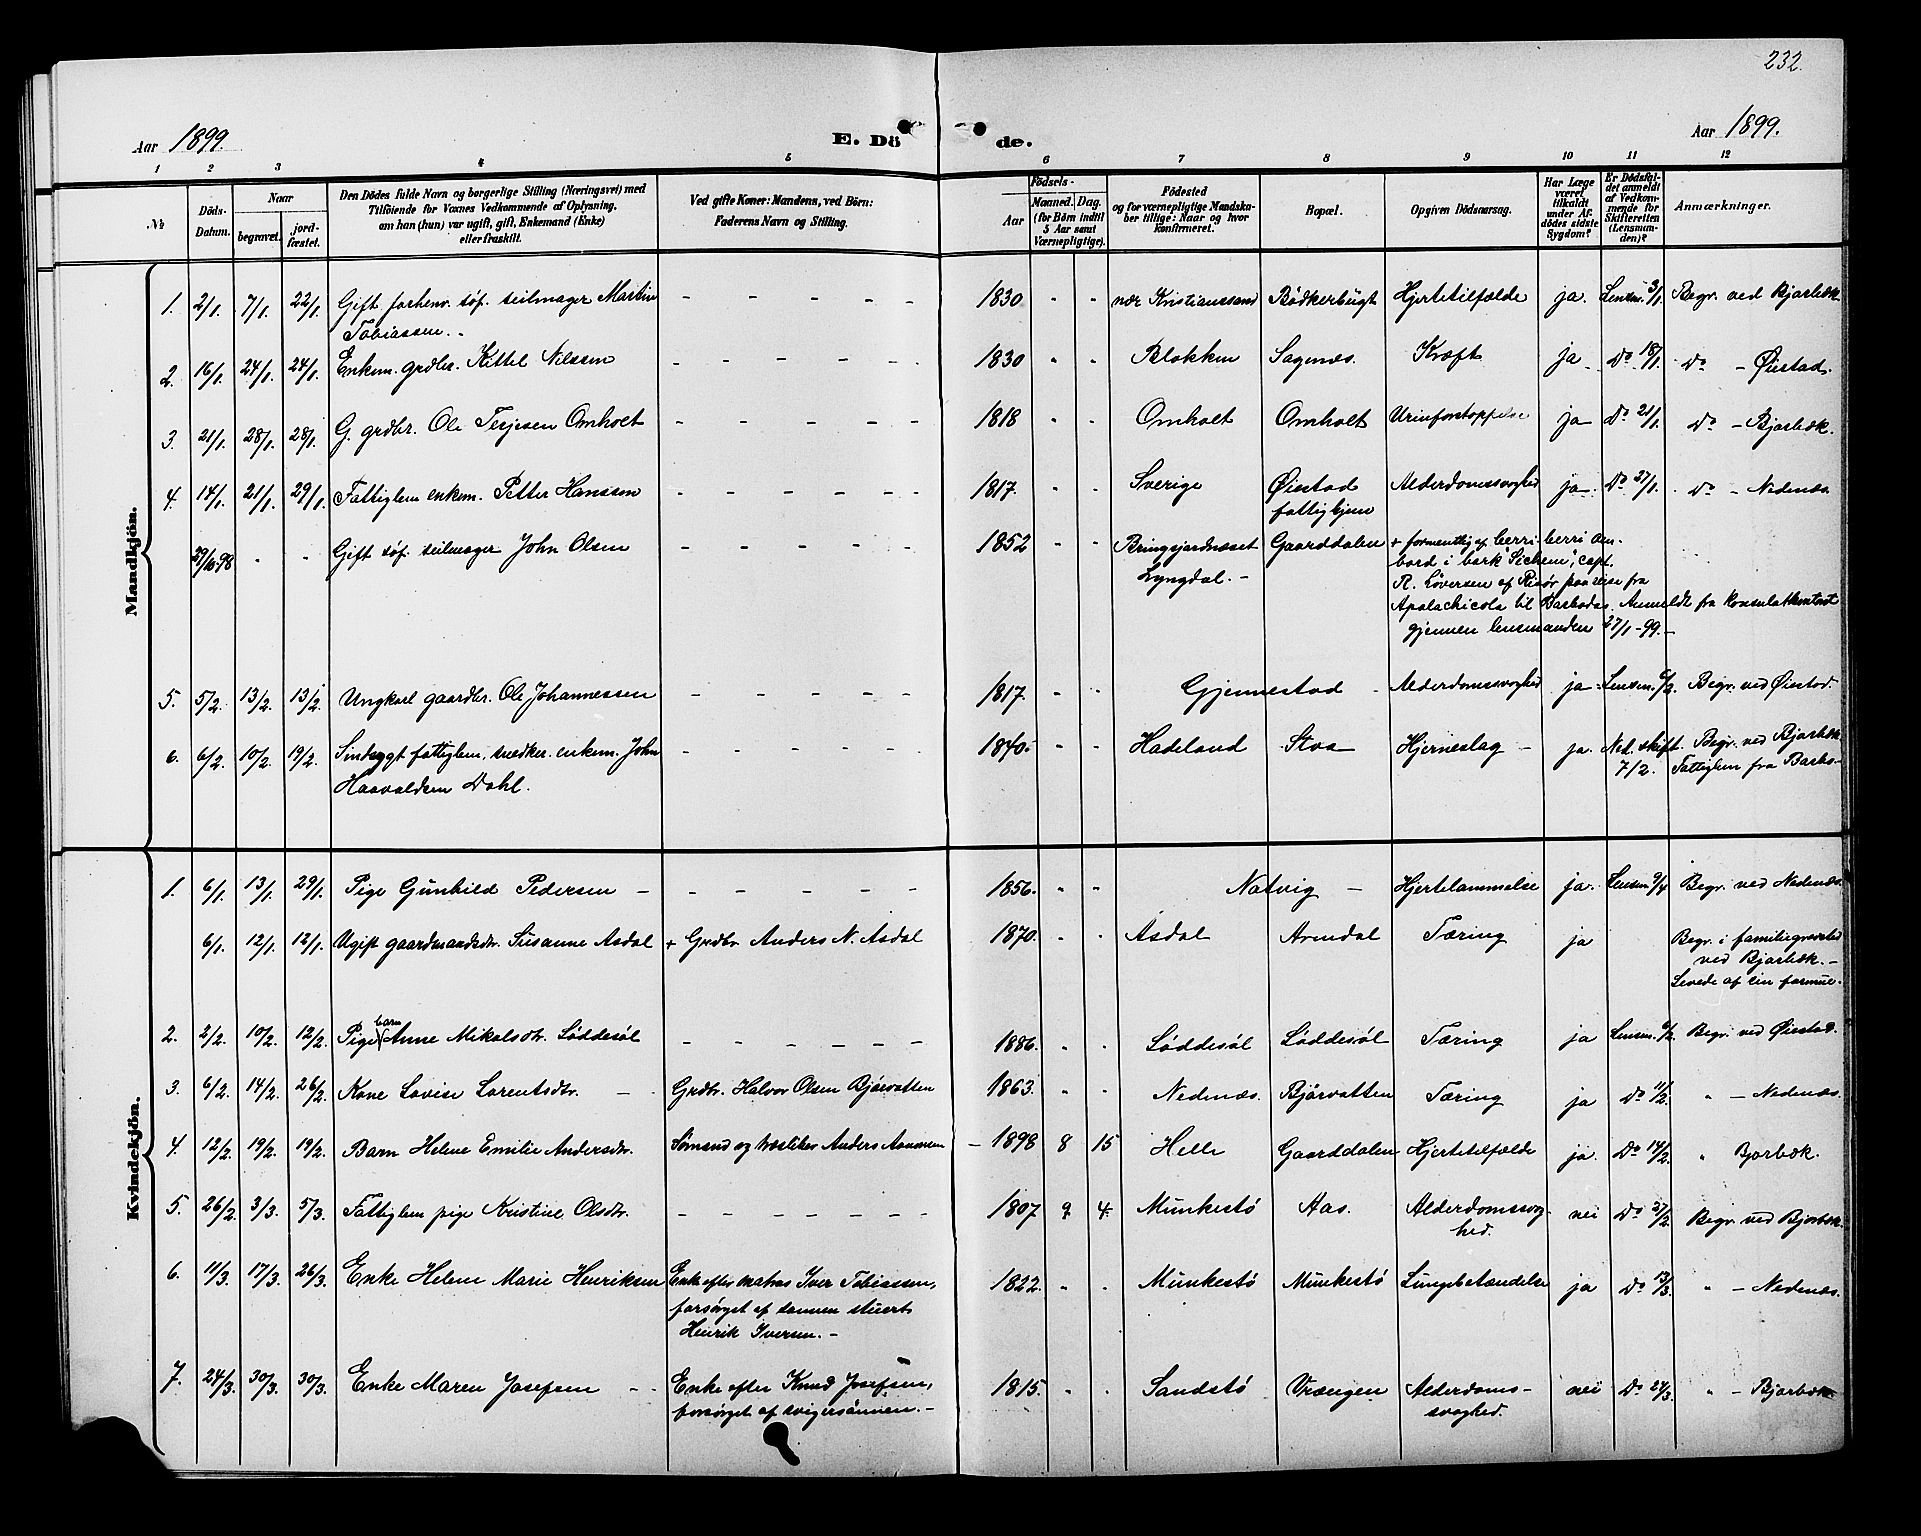 232.
Aar 1899.
E. Dö
de.
Aar 1899.
1 2 3 4 5 6 7 8 9 10 11 12
№
Döds-Datum.
Naar
begravet.
jord-fæstet.
Den Dödes fulde Navn og borgerlige Stilling (Næringsvei) med
Tilföiende for Voxnes Vedkommende af Oplysning,
om han (hun) var ugift, gift, Enkemand (Enke)
eller fraskilt.
Ved gifte Koner: Mandens, ved Börn:
Faderens Navn og Stilling.
Födsels-
Aar
Maaned. Dag.
(for Börn indtil
5 Aar samt
Værnepligtige).
Födested
og for værnepligtige Mandska-
ber tillige: Naar og hvor
konfirmeret.
Bopæl.
Opgiven Dödsaarsag.
Har Læge
været
tilkaldt
under Af-
dödes sidste
Sygdom?
Er Dödsfal-
det anmeldt
af Vedkom-
mende for
Skifteretten
(Lensman-
den)?
Anmærkninger.
Mandkjön.
1. 2/1. 7/1. 22/1. Gift forhenv. söf. seilmager Martin - - - - - 1830 " " nær Kristianssand Bödkerbugt Hjertetilfælde ja. Lensm. 3/1. Begr. ved Bjorbæk
Tobiassen. -
2. 16/1. 24/1. 24/1. Enkem. grdbr. Kittel Nilssen - - - - - 1830 " " Blokken Sagenæs. Kræft ja Do 18/1. Do - Øiestad.
3. 21/1. 28/1. 28/1. G. grdbr. Ole Terjesen Omholt - - - - - 1818 " " Omholt Omholt Urinforstoppelse ja Do 21/1. Do - Bjorbæk.
4. 14/1. 21/1. 29/1. Fattiglem enkem. Petter Hanssen - - - - - 1817. " " Sverige Øiestad Alderdomssvaghed ja. Do 27/1. Do - Nedenæs.
fattighjem
29/10-98 " " Gift söf. seilmager John Olsen - - - - - 1852 " " Bringsjordnæsset Gaarddalen + formentlig af berri berri om-
Lyngdal. - bord i bark "Sichem", capt.
R. Løversen af Risør paa reise fra
Apalachicola til Barbados. Anmeldt fra Konsulatkontoret
gjennem lensmanden 27/1-99. -
5. 5/2. 13/2. 13/2. Ungkarl gaardbr. Ole Johannessen - - - - - 1817. " " Gjennestad - Alderdomssvaghed ja Lensm. 6/2. Begr. ved Øiestad.
6. 6/2. 10/2. 19/2. Sindsygt fattiglem, snedker. enkem. John - - - - - 1840. " " Hadeland Stoa Hjerneslag - ja. Ned. skift. Begr. ved Bjorbæk
Haavaldsen Dahl. 7/2. Fattiglem fra Barbo-
Kvindekjön.
1. 6/1. 13/1. 29/1. Pige Gunhild Pedersen - - - - - - 1856. " " Natvig - Hjertelammelse ja. Lensm. 9/1 Begr. ved Nedenæs.
6/1. 12/1. 12/1. Ugift gaardmandsdtr. Susanne Asdal + Grdbr. Anders N. Asdal 1870. " " Asdal Arendal Tæring ja Begr. i familiegravsted
ved Bjorbæk. -
Levede af sin formue. -
2. 2/2. 10/2. 12/2. Pige barn Anne Mikalsdtr. Løddesøl - - - - - - 1886. " " Løddesøl Løddesøl Tæring ja Lensm. 6/2. Begr. ved Øiestad.
3. 6/2. 14/2. 26/2. Kone Lovise Lorentsdtr. - Grdbr. Halvor Olsen Bjørvatten 1863. " " Nedenæs. Bjørvatten Tæring ja Do 11/2. " - Nedenæs.
4. 12/2. 19/2. 19/2. Barn Helene Emilie Andersdtr. Sømand og Anders Aanonsen - 1898 8 15 Helle Gaarddalen Hjertetilfælde ja. Do 14/2. " Bjorbæk.
5. 26/2 3/3. 5/3. Fattiglem pige Kristine Olsdtr. - - - - - - 1807 9 4. Munkestø Aas. Alderdomssvag- nei Do 27/2. Begr. ved Bjorbæk.
hed.
6. 11/3. 17/3. 26/3. Enke Helene Marie Henriksen Enke efter matros Iver Tobiassen, 1822. " " Munkestø Munkestø Lungebetændelse ja Do 13/3. " - Nedenæs.
forsørget af sønnen stuert
Henrik Iversen. -
7. 24/3. 30/3. 30/3. Enke Maren Josefsen - - Enke efter Knud Josefsen, 1815. " " Sandstø Vrængen Alderdoms- nei Do 27/3. " - Bjorbæk
forsørget af svigersønnen. - svaghed.